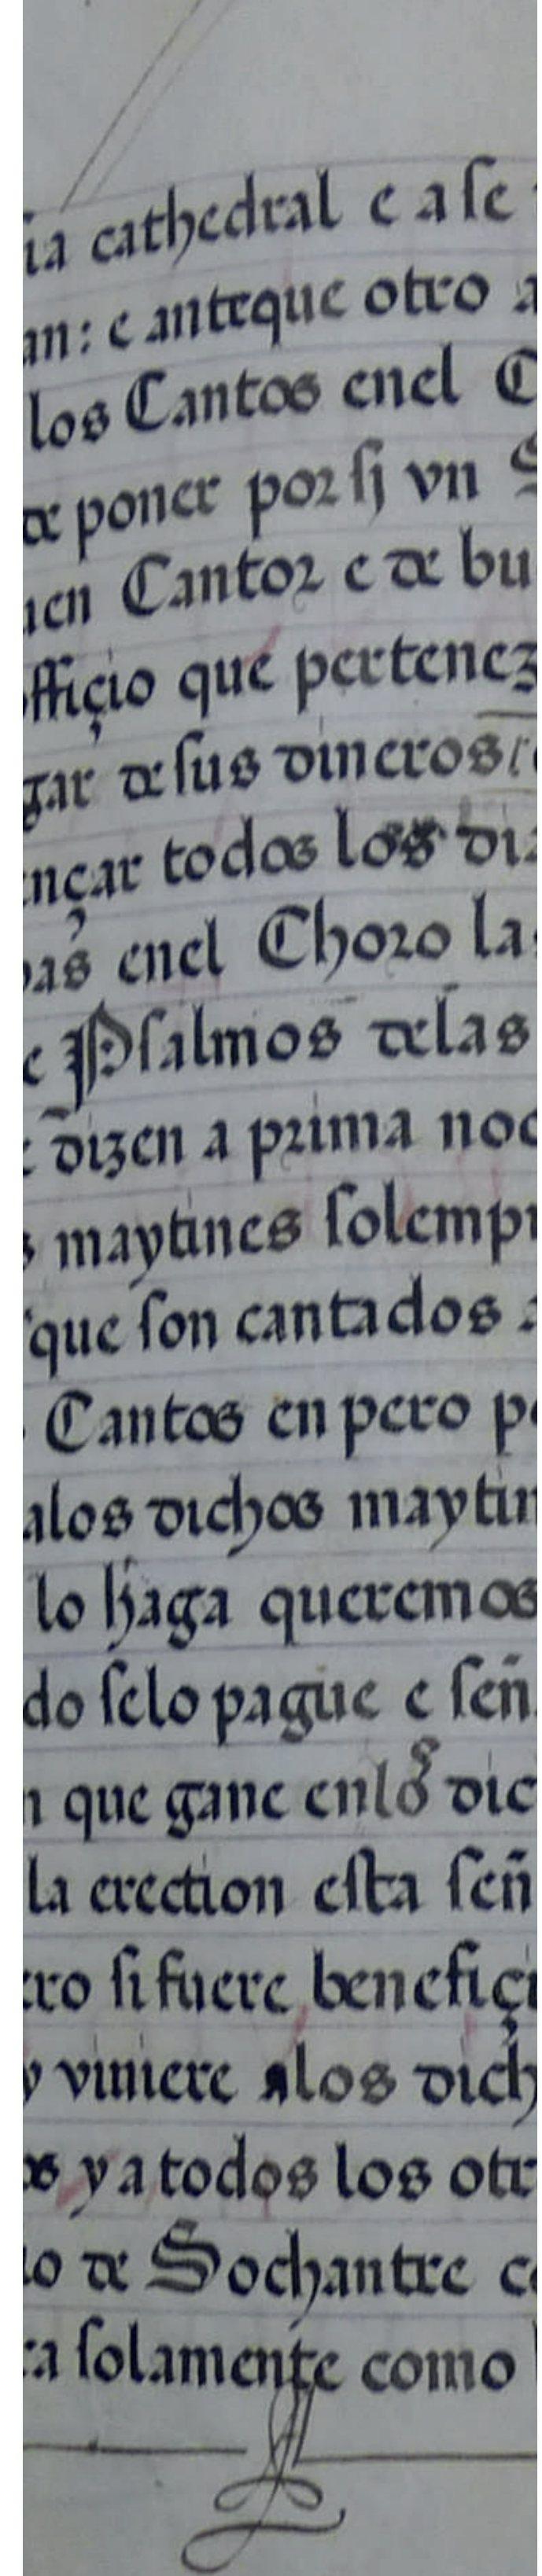 ia cathedral e a se
an: e anteque otro a
los Cantos enel C
de poner por sj vn S
uen Cantor e de bu
offiçio que pertenez
gar de sus dineros
ençar todos los dia
pas enel Choro las
e Psalmos delas
e dizen a prima noc
s maytines solempn
que son cantados a
Cantos en pero p
alos dichos maytin
lo haga queremos
do selo pague e señ
n que gane enlos dic
la erection esta señ
tro si fuere benefiçi
y viniere alos dich
os y a todos los otr
io de Sochantre co
ra solamente como